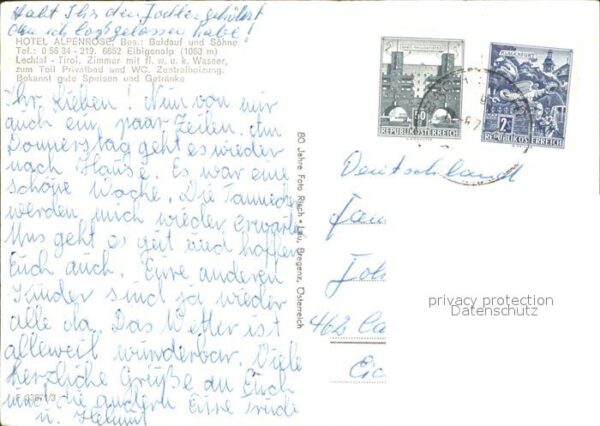 Habt Ihr den Jodler gehört
den ich losgelassen habe!
HOTEL ALPENROSE, Bes.: Baldauf und Söhne
Tel.: 0 56 34 - 219, 6652 Elbigenalp (1060 m)
Lechtal - Tirol. Zimmer mit fl. w. u. k. Wasser,
zum Teil Privatbad und WC. Zentralheizung.
Bekannt gute Speisen und Getränke
Ihr Lieben! Nun von mir
auch ein paar Zeilen. Am
Donnerstag geht es wieder
nach Hause. Es war eine
schöne Woche. Die
werden mich wieder erwarten
Uns geht es gut und hoffen
Euch auch. Eure anderen
Kinder sind ja wieder
alle da. Das Wetter ist
alleweil wunderbar. Viele
herzliche Grüße an Euch
und die andern Eure
u. Helmut
80 Jahre Foto Risch-Lau, Bregenz, Österreich
50
REPUBLIK ÖSTERREICH
KLAGENFURT
2S
REPUBLIK ÖSTERREICH
Deutschland
Fam
Joh
462 Ca
Eic
privacy protection
Datenschutz